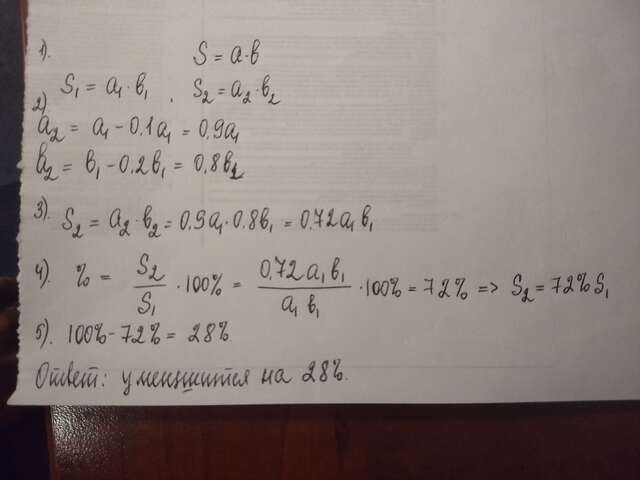 1). S = a·b
S₁ = a₁·b₁ , S₂ = a₂·b₂
2)
a₂ = a₁ - 0.1a₁ = 0.9a₁
b₂ = b₁ - 0.2b₁ = 0.8b₂
3). S₂ = a₂·b₂ = 0.9a₁·0.8b₁ = 0.72a₁b₁
4). % = S₂/S₁ ·100% = 0.72a₁b₁/a₁b₁ ·100% = 72% => S₂ = 72% S₁
5). 100% - 72% = 28%
Ответ: уменшится на 28%.